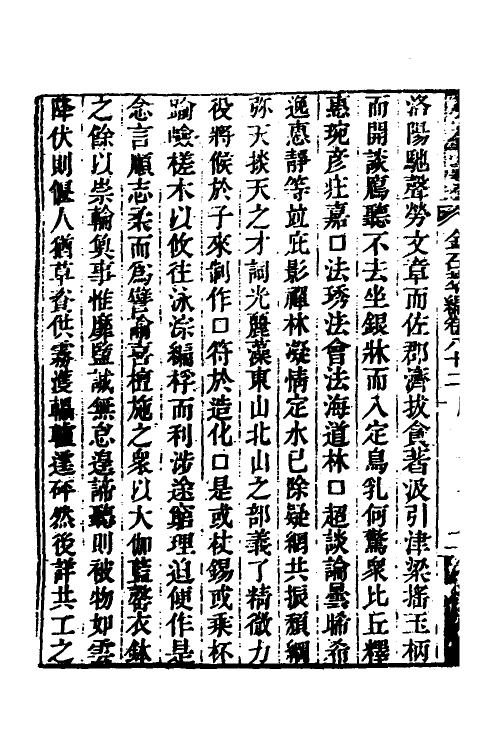 洛陽馳聲勞文章而佐郡濟拔貪著汲引津梁搖玉柄
而開談鴈聽不去坐銀牀而入定鳥乳何驚衆比丘釋
惠琬彥壯嘉口法琇法會法海道林口超談論曇晞希
逸惠靜等竝庇影禪林凝情定水已除疑網共振頽綱
弥天掞天之才詞光麗藻東山北山之部義了精微力
役將候於子來制作口符於造化口是或杖錫或乘杯
踰嶮槎木以攸往泳淙編桴而利涉途窮理迫便作是
念言順志柔而爲譬喻喜檀施之衆以大伽藍罄衣鉢
之餘以崇輪奐事惟靡盬誠無怠遑諦聽則被物如雲
降伏則偃人猶草資供霧濩轀轤逢砰然後詳共工之
金石萃編卷八十二